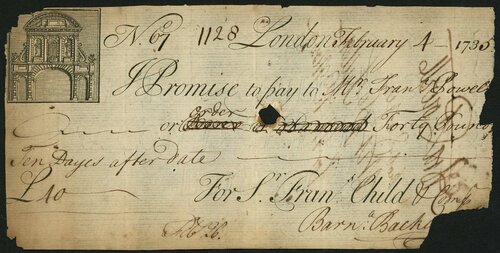 No. 69 1128 London February 4 - 1735
I Promise to pay to Mr. Fran. Powel
or order Forty Pounds
Ten Dayes after date
£40 For Sr. Fran. Child & Comp
Barn. Backw